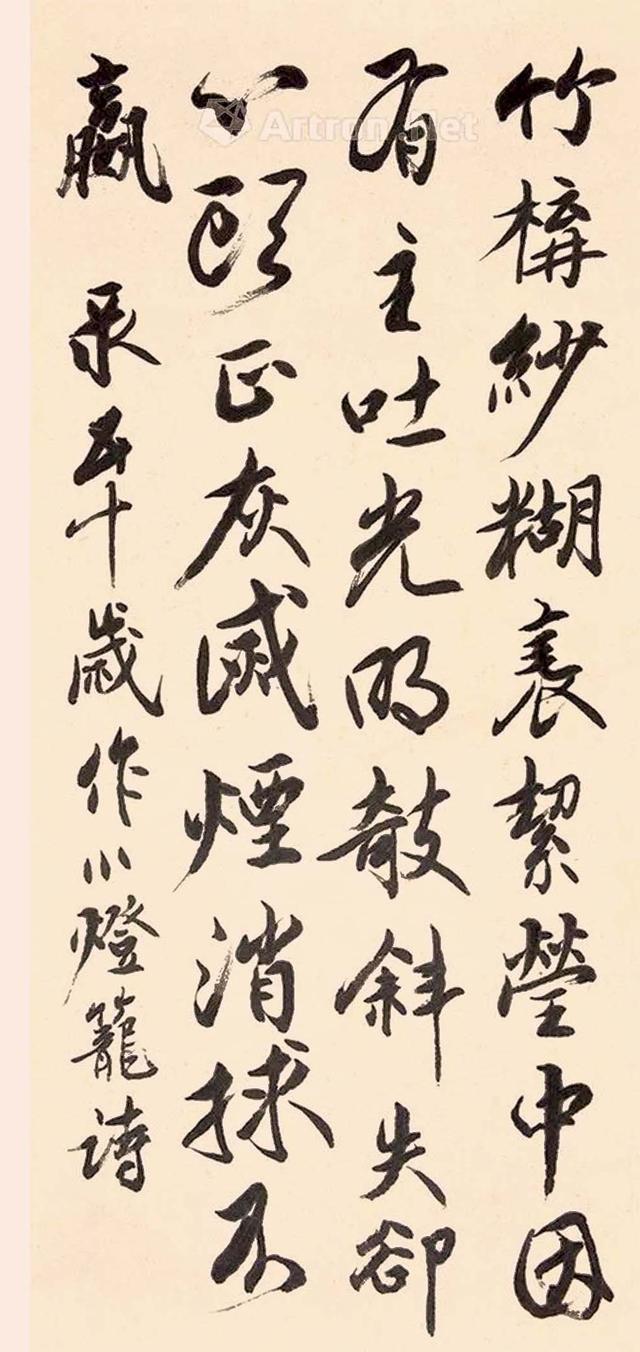 竹構紗糊表絜瑩中因
有主吐光明攲斜失卻
心頭正灰滅煙消捄不
贏 五十歲作小燈籠詩
Artron.Net